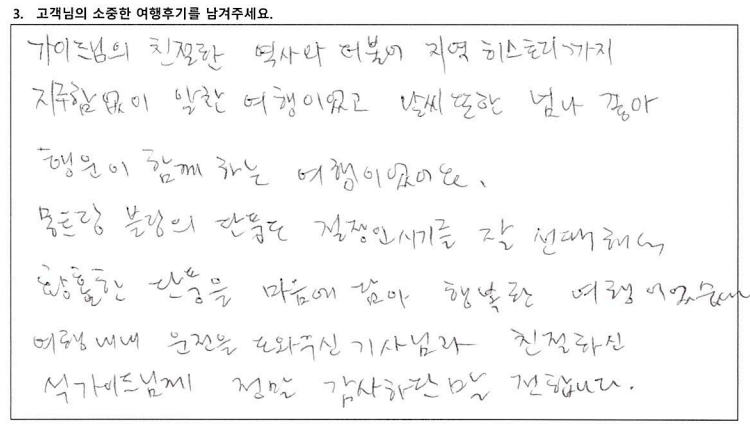 3. 고객님의 소중한 여행후기를 남겨주세요.
가이드님의 친절한 역사와 더불어 지역 히스토리까지
지루함없이 알찬 여행이었고 날씨 또한 넘나 좋아
행운이 함께 하는 여행이었어요.
몽트랑 블랑의 단풍도 절정인시기를 잘 선택해서
황홀한 단풍을 마음에 담아 행복한 여행이었습니다
여행내내 운전을 도와주신 기사님과 친절하신
석가이드님께 정말 감사하단 말 전합니다.